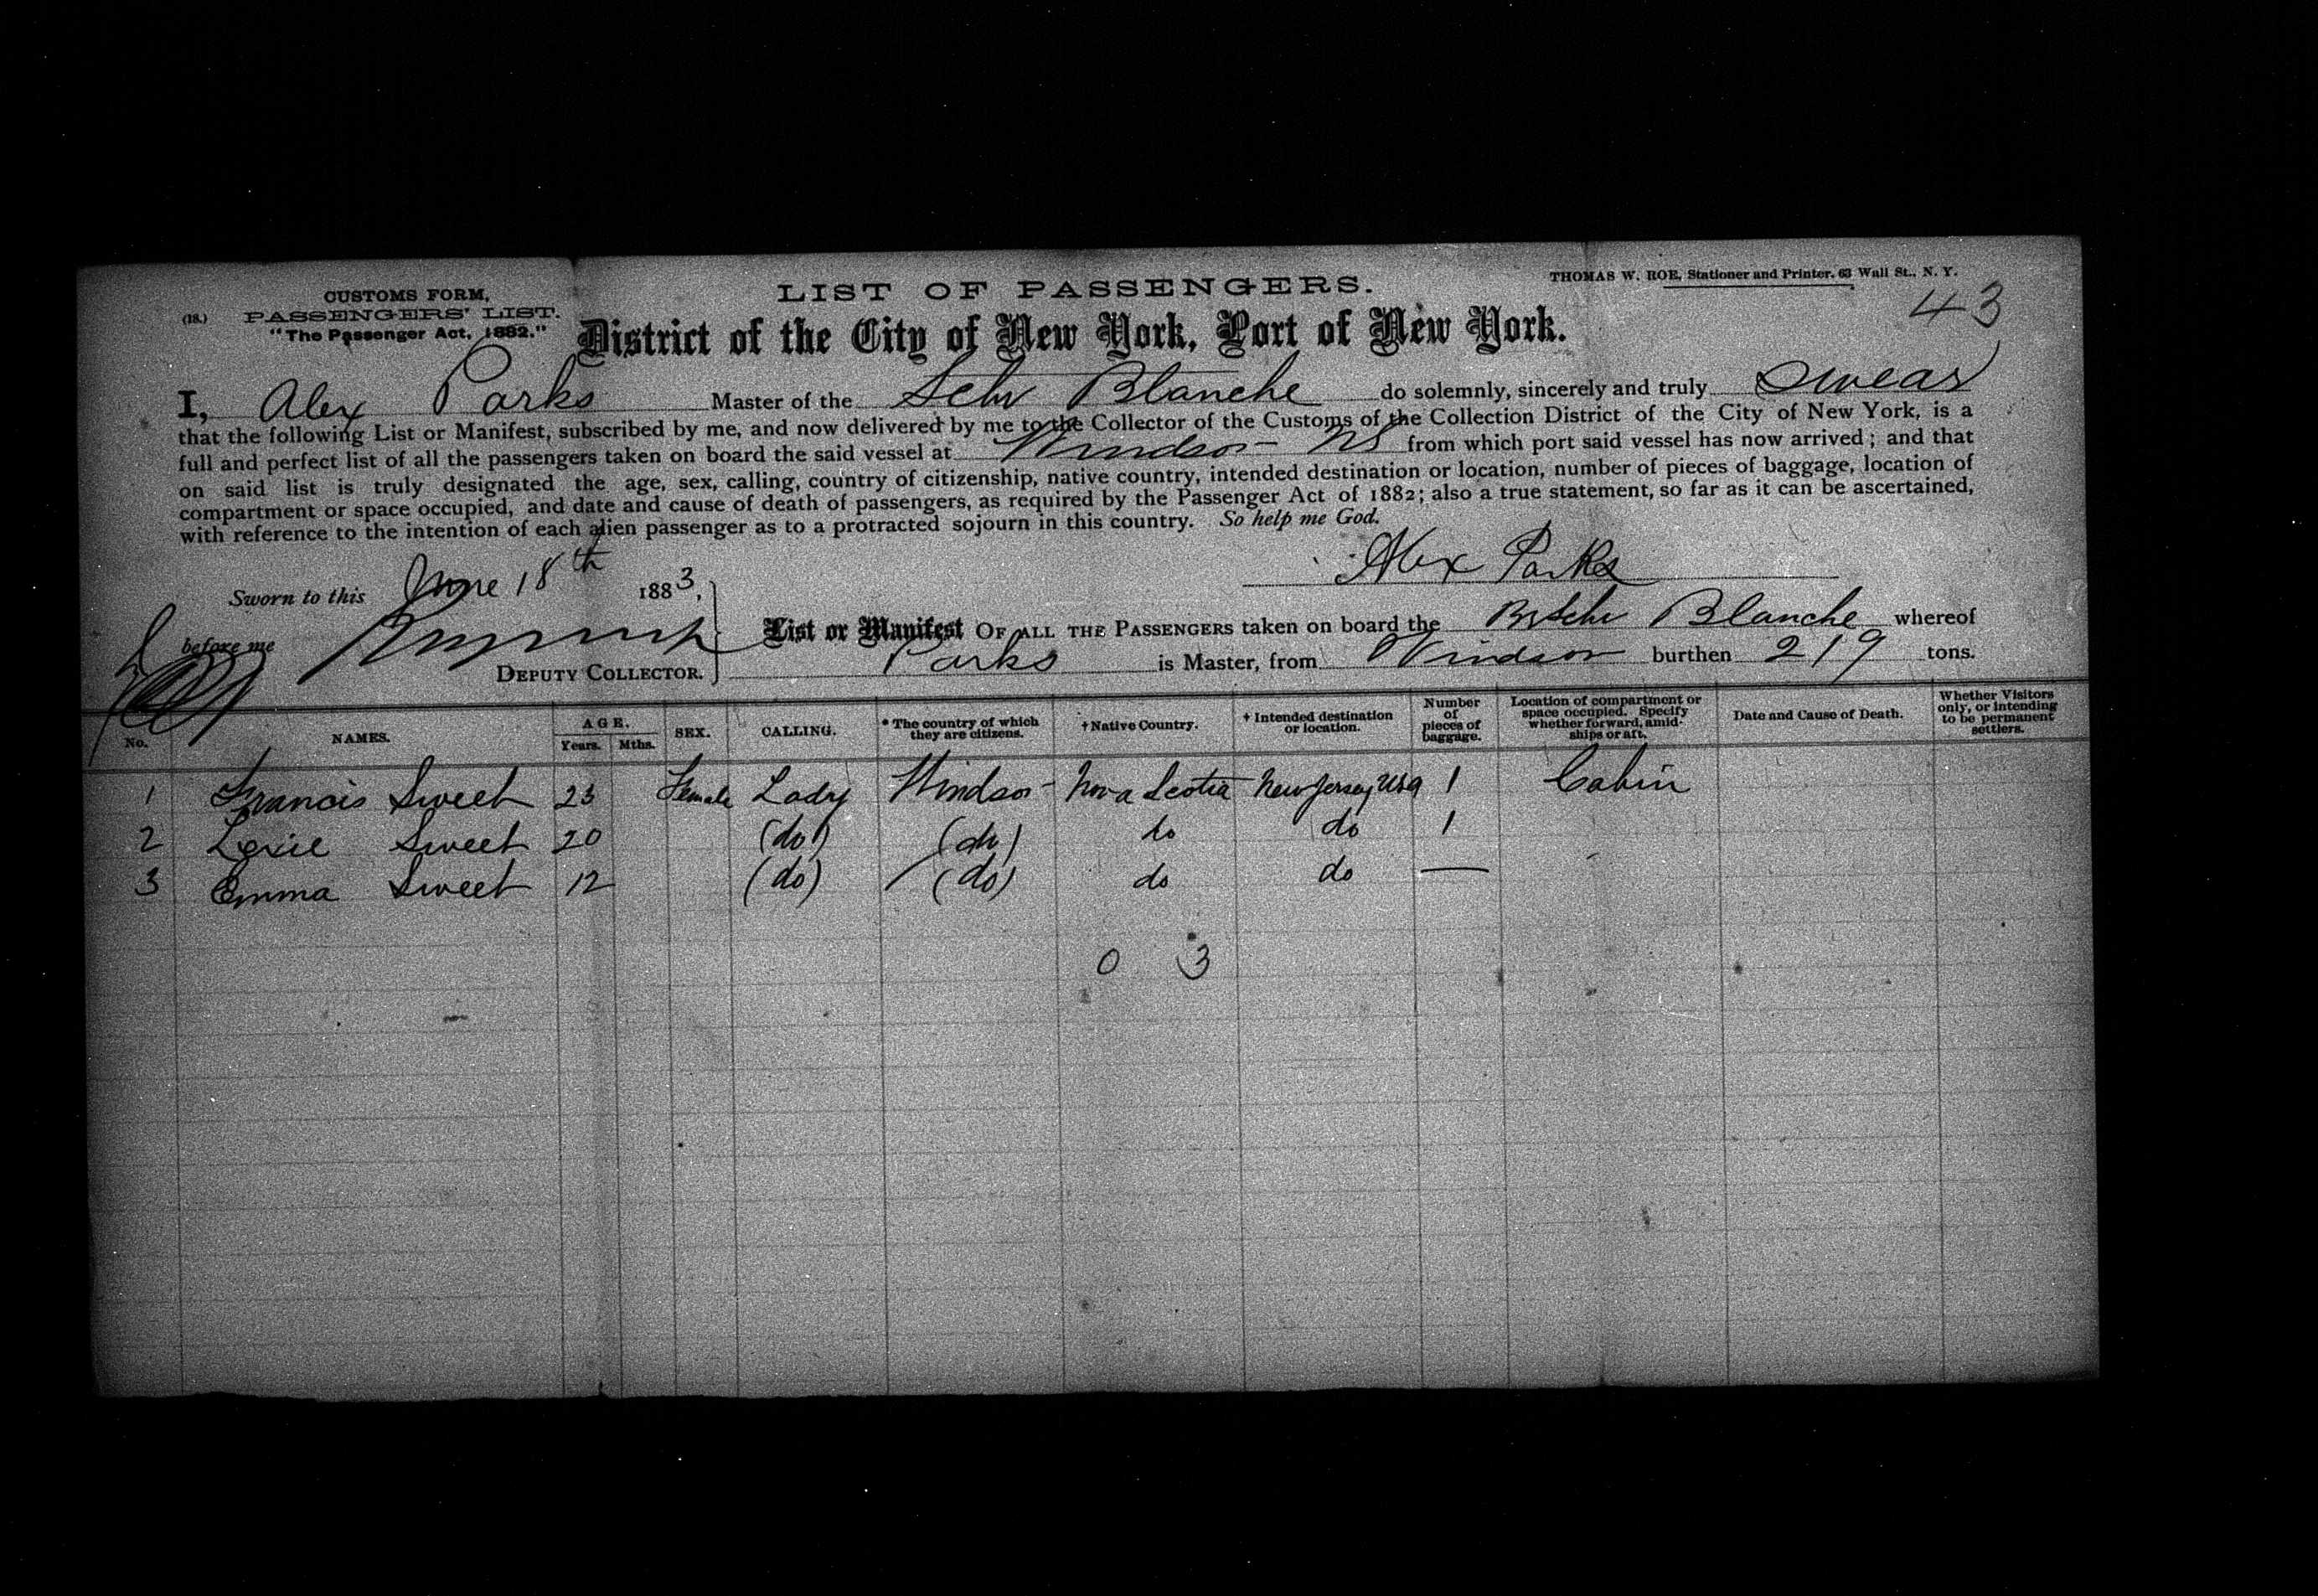 THOMAS W. ROE, Stationer and Printer, 63 Wall St., N. Y.
43
CUSTOMS FORM,
(18.) PASSENGERS' LIST.
"The Passenger Act, 1882."
LIST OF PASSENGERS.
District of the City of New York, Port of New York.
I, Alex Parks Master of the Schr Blanche do solemnly, sincerely and truly Swear
that the following List or Manifest, subscribed by me, and now delivered by me to the Collector of the Customs of the Collection District of the City of New York, is a
full and perfect list of all the passengers taken on board the said vessel at Windsor NS from which port said vessel has now arrived; and that
on said list is truly designated the age, sex, calling, country of citizenship, native country, intended destination or location, number of pieces of baggage, location of
compartment or space occupied, and date and cause of death of passengers, as required by the Passenger Act of 1882; also a true statement, so far as it can be ascertained,
with reference to the intention of each alien passenger as to a protracted sojourn in this country. So help me God.
Alex Parks
Sworn to this June 18th 1883,
before me
DEPUTY COLLECTOR.
List or Manifest OF ALL THE PASSENGERS taken on board the Br Schr Blanche whereof
Parks is Master, from Windsor burthen 219 tons.
No. NAMES. AGE. Years. Mths. SEX. CALLING. * The country of which they are citizens. † Native Country. † Intended destination or location. Number of pieces of baggage. Location of compartment or space occupied. Specify whether forward, amidships or aft. Date and Cause of Death. Whether Visitors only, or intending to be permanent settlers.
1 Francis Sweet 23 Female Lady Windsor Nova Scotia New Jersey USA 1 Cabin
2 Lexie Sweet 20 (do) (do) do do 1
3 Emma Sweet 12 (do) (do) do do —
0 3